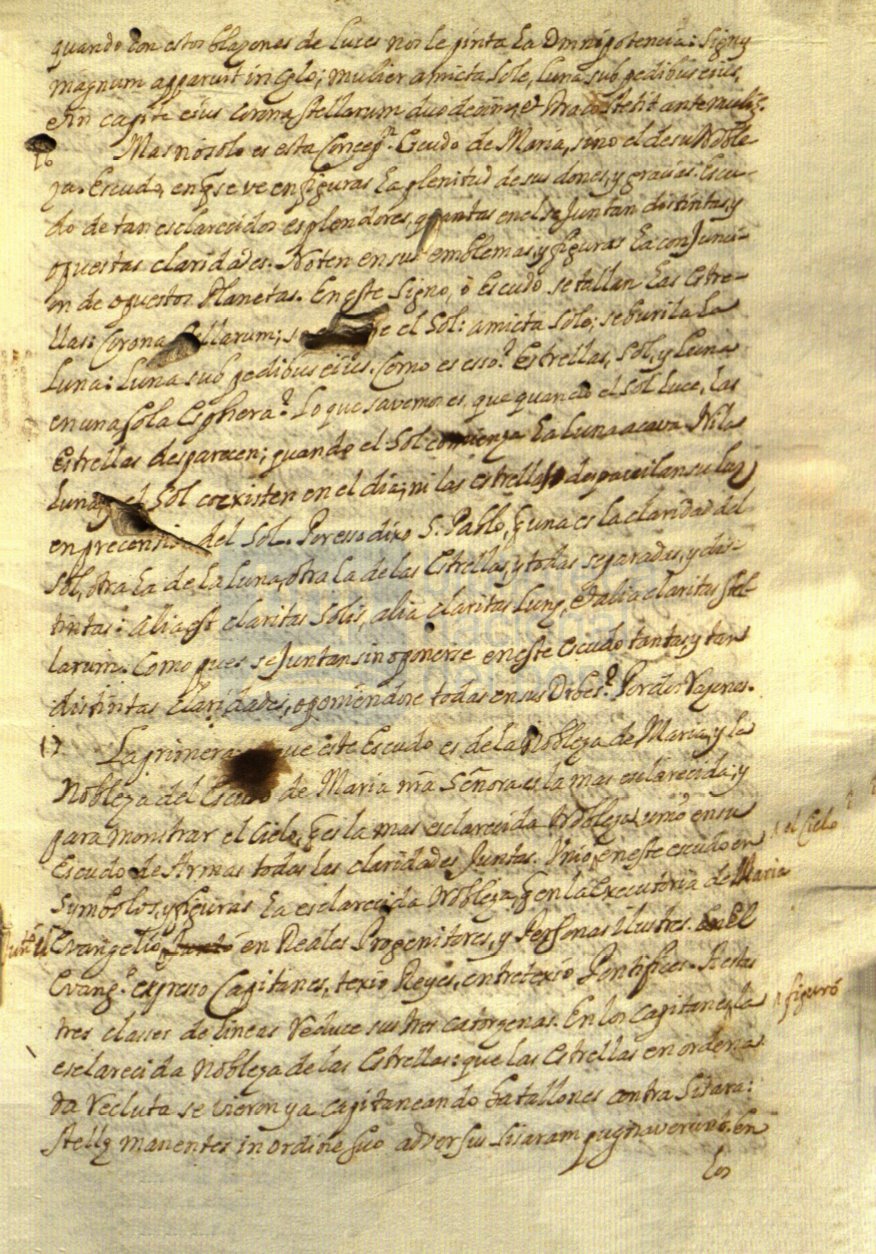 quando con estos blazones de luces nos le pinta la Omnipotencia: Signũ
magnum apparuit in Cęlo; mulier amicta sole, luna sub pedibus eius,
et in capite eius corona stellarum duodecim, et Draco stetit ante muliẽ.
16 Mas nó solo es esta Concepn. Escudo de Maria, sino el de su Noble-
za. Escudo, en q̃ se ve en figuras la plenitud de sus dones, y gracias. Escu-
do de tan esclarecidos esplendores, quantas en el se Juntan distintas, y
opuestas claridades. Noten en sus emblemas, y figuras la conJunci-
on de opuestos Planetas. En este Signo, ò Escudo se tallan las Estre-
llas: Corona stellarum; se el Sol: amicta sole; se burila la
Luna: Luna sub pedibus eius. Como es esso? Estrellas, Sol, y Luna
en una sola Esphera? Lo que savemos es, que quando el Sol luce, las
Estrellas desparecen; quando el Sol comienza la Luna acava. Ni la
Luna, y el Sol coexisten en el dia; ni las estrellas su luz
en precensia del Sol. Por esso dixo S. Pablo, q̃ una es la claridad del
Sol, otra la de la Luna, otra la de las Estrellas, y todas separadas, y dis-
tintas: alia est claritas Solis, alia claritas Lunę, et alia claritas stel-
larum. Como pues se Juntan sin oponerse en este escudo tantas, y tan
distintas claridades, oponiendose todas en sus Orbes? Por dos razones.
17 La primera: que este Escudo es de la Nobleza de Maria, y la
Nobleza del Escudo de Maria ñra Señora es la mas esclarecida; y
para monstrar el Cielo, q̃ es la mas esclarecida Nobleza, unió en su
Escudo de Armas todas las claridades Juntas. Vnió en este escudo en ^ el Cielo
Symbolos, y figuras la esclarecida Nobleza, q̃ en la Executoria de Maria
Juntó el Evangelio Juntó en Reales Progenitores, y Personas Ilustres. En El
Evango. expreso Capitanes, texió Reyes, entretexió Pontifices. A estas
tres clases de lineas reduce sus tres catorzenas. En los Capitanes la ^ figuró
esclarecida Nobleza de las Estrellas: que las Estrellas en ordena-
da recluta se vieron ya capitaneando batallones contra Sisara:
Stellę manentes in ordine suo adversus Sisaram pugnaverunt. En
los